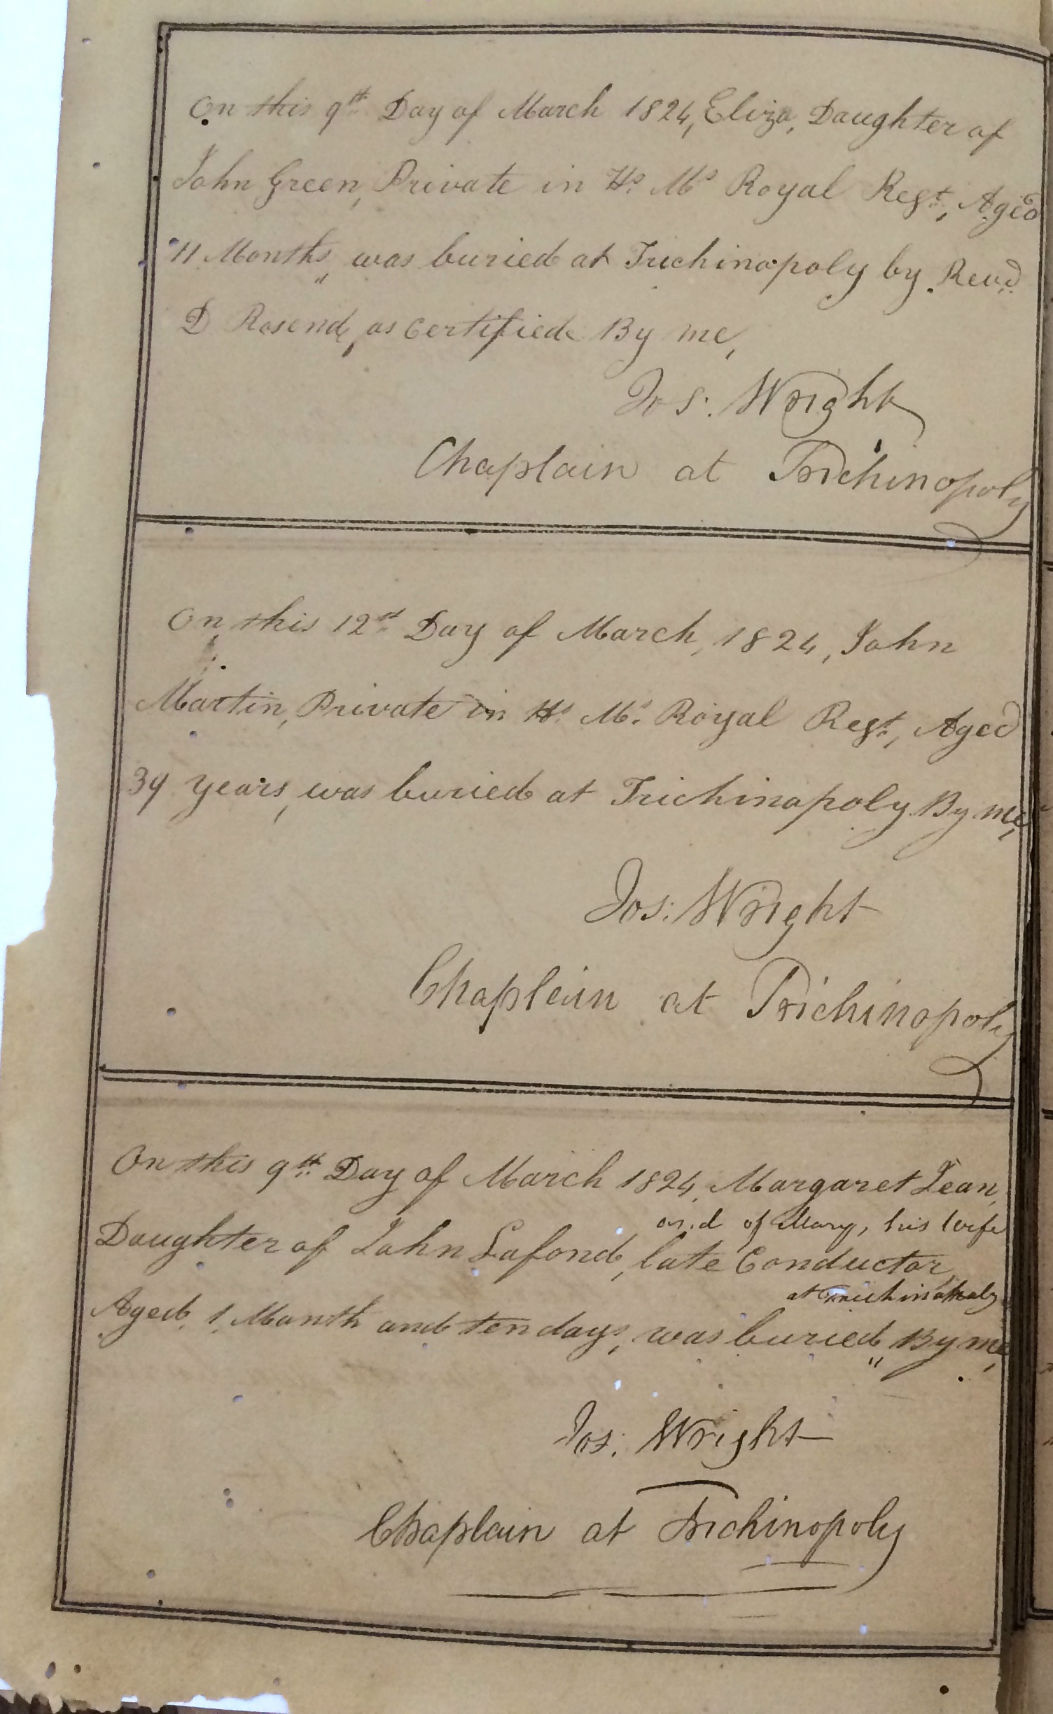 On this 9th Day of March 1824, Eliza, Daughter of
John Green, Private in Hs. Ms. Royal Regt, Aged
11 Months, was buried at Trichinopoly by Revd.
D Rosend, as certified By me,
Jos. Wright
Chaplain at Trichinopoly
On this 12th Day of March, 1824, John
Martin, Private in Hs. Ms. Royal Regt, Aged
39 years, was buried at Trichinopoly By me,
Jos: Wright
Chaplain at Trichinopoly
On this 9th Day of March 1824, Margaret Jean,
and of Mary, his Wife
Daughter of John Lafond, late Conductor,
at Trichinopoly
Aged 1 Month and ten days, was buried, By me,
Jos: Wright
Chaplain at Trichinopoly